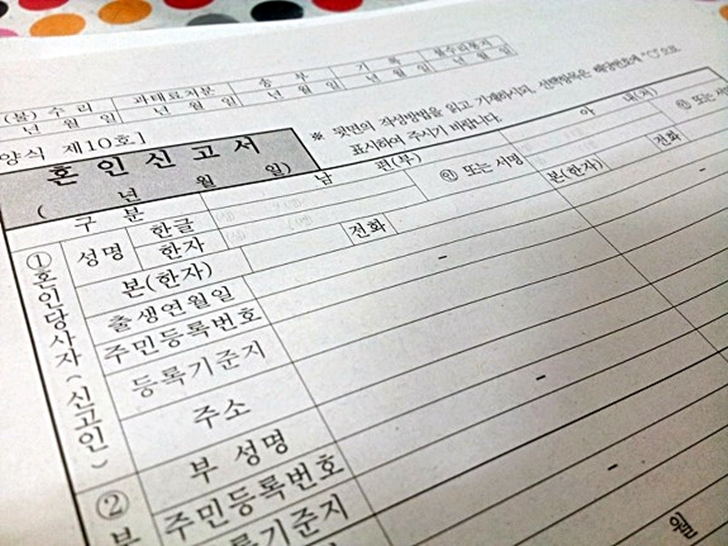 (불) 수 리 과태료처분 송 부 기 록 불수리통지
년 월 일 년 월 일 년 월 일 년 월 일 년 월 일
양식 제10호]
※ 뒷면의 작성방법을 읽고 기재하시되, 선택항목은 해당번호에 "○"으로
표시하여 주시기 바랍니다.
혼 인 신 고 서
( 년 월 일)
구 분 남 편(부) 아 내(처)
①혼인당사자(신고인)
성명 한글 ㊞ 또는 서명 ㊞ 또는 서
한자 전화 전화
본(한자) 본(한자)
출생연월일
주민등록번호 -
등록기준지
주소
② 부
부 성명
주민등록번호 -
록기준지